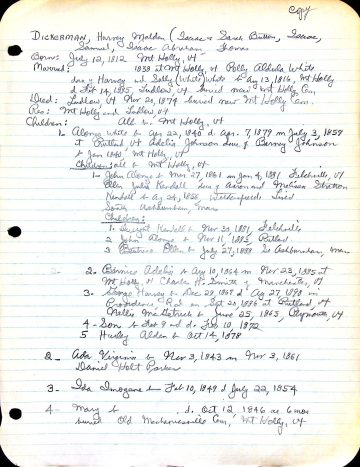 Copy
DICKERMAN, Harvey Malden (Isaac & Sarah Button, Isaac,
Samuel, Isaac Abraham, Thomas
Born: July 12, 1812 Mt Holly, Vt
Married: 1838 at Mt Holly, Vt Polly Aldula White
dau of Harvey and Sally (White) White b Aug 13, 1816, Mt Holly
d Feb 14, 1885, Ludlow, Vt buried new Mt Holly Cem.
Died: Ludlow, Vt Nov 20, 1874 buried new Mt Holly Cem.
Res: Mt Holly and Ludlow, Vt
Children: All b. Mt Holly, Vt
1. Alonzo White b Apr 22, 1840 d. Apr. 7, 1879 m July 3, 1859
at Rutland Vt Adelia Johnson dau of Barney Johnson
b Jan 1840, Mt Holly, Vt
Children: all b Mt Holly, Vt
1. John Alonzo b Mar 27, 1861 m Jan 4, 1881 Felchville, Vt
Ellen Julia Kendall dau of Aaron and
Kendall b Aug 24, 1858, Weathersfield lived
South Ashburnham, Mass
Children:
1. Dwight Kendall b Nov 30, 1881, Felchville
2. John Alonzo b Nov 11, 1883, Rutland
3. Ellen b July 27, 1888 So Ashburnham, Mass
2. Bernice Adelia b Aug 10, 1864 m Nov 23, 1885 at
Mt Holly, Vt Charles H. Smith of Manchester, Vt
3. George Harvey b Dec 29, 1867 d Aug 27, 1898 in
Providence R.I. m Sept 20, 1886 at Rutland, Vt
Nellie b June 25, 1865, Plymouth, Vt
4 - Son b Feb 9 and d. Feb 10, 1872
5 Hurley Alden b Oct 14, 1878
2 - Ada Virginia b Nov 3, 1843 m Nov 3, 1861
Daniel Holt Parker
3 - Ida Imogene b Feb 10, 1849 d July 22, 1854
4 - Mary b , d. Oct 12, 1846 ae 6 mos
buried Old Mechanicsville Cem, Mt Holly, Vt